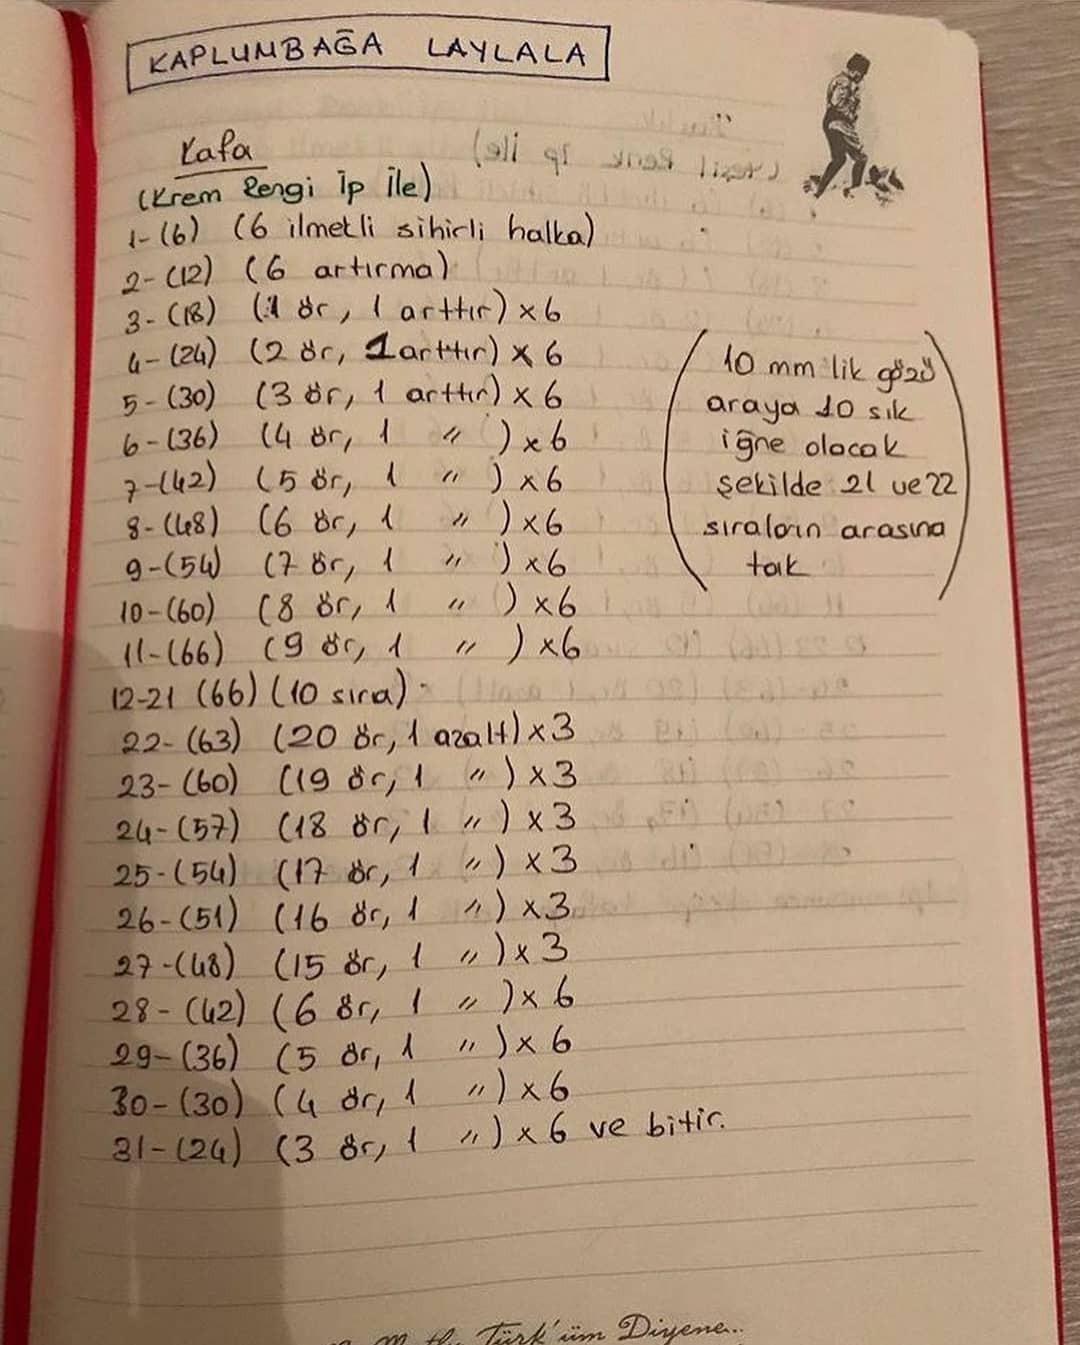 KAPLUMBAĞA LAYLALA
Kafa
(Krem Rengi İp İle)
1-(6) (6 ilmekli sihirli halka)
2-(12) (6 artırma)
3-(18) (1 ör, 1 arttır) x 6
4-(24) (2 ör, 1 arttır) x 6
5-(30) (3 ör, 1 arttır) x 6
6-(36) (4 ör, 1 〃 ) x 6
7-(42) (5 ör, 1 〃 ) x6
8-(48) (6 ör, 1 〃 ) x6
9-(54) (7 ör, 1 〃 ) x6
10-(60) (8 ör, 1 〃 ) x6
11-(66) (9 ör, 1 〃 ) x6
12-21 (66) (10 sıra)
22-(63) (20 ör, 1 azalt) x3
23-(60) (19 ör, 1 〃 ) x3
24-(57) (18 ör, 1 〃 ) x 3
25-(54) (17 ör, 1 〃 ) x 3
26-(51) (16 ör, 1 〃 ) x3
27-(48) (15 ör, 1 〃 ) x 3
28-(42) (6 ör, 1 〃 ) x 6
29-(36) (5 ör, 1 〃 ) x 6
30-(30) (4 ör, 1 〃 ) x 6
31-(24) (3 ör, 1 〃 ) x 6 ve bitir.
(10 mm'lik gözü
araya 10 sık
iğne olacak
şekilde 21 ve 22
sıraların arasına
tak)
Türk'üm Diyene..